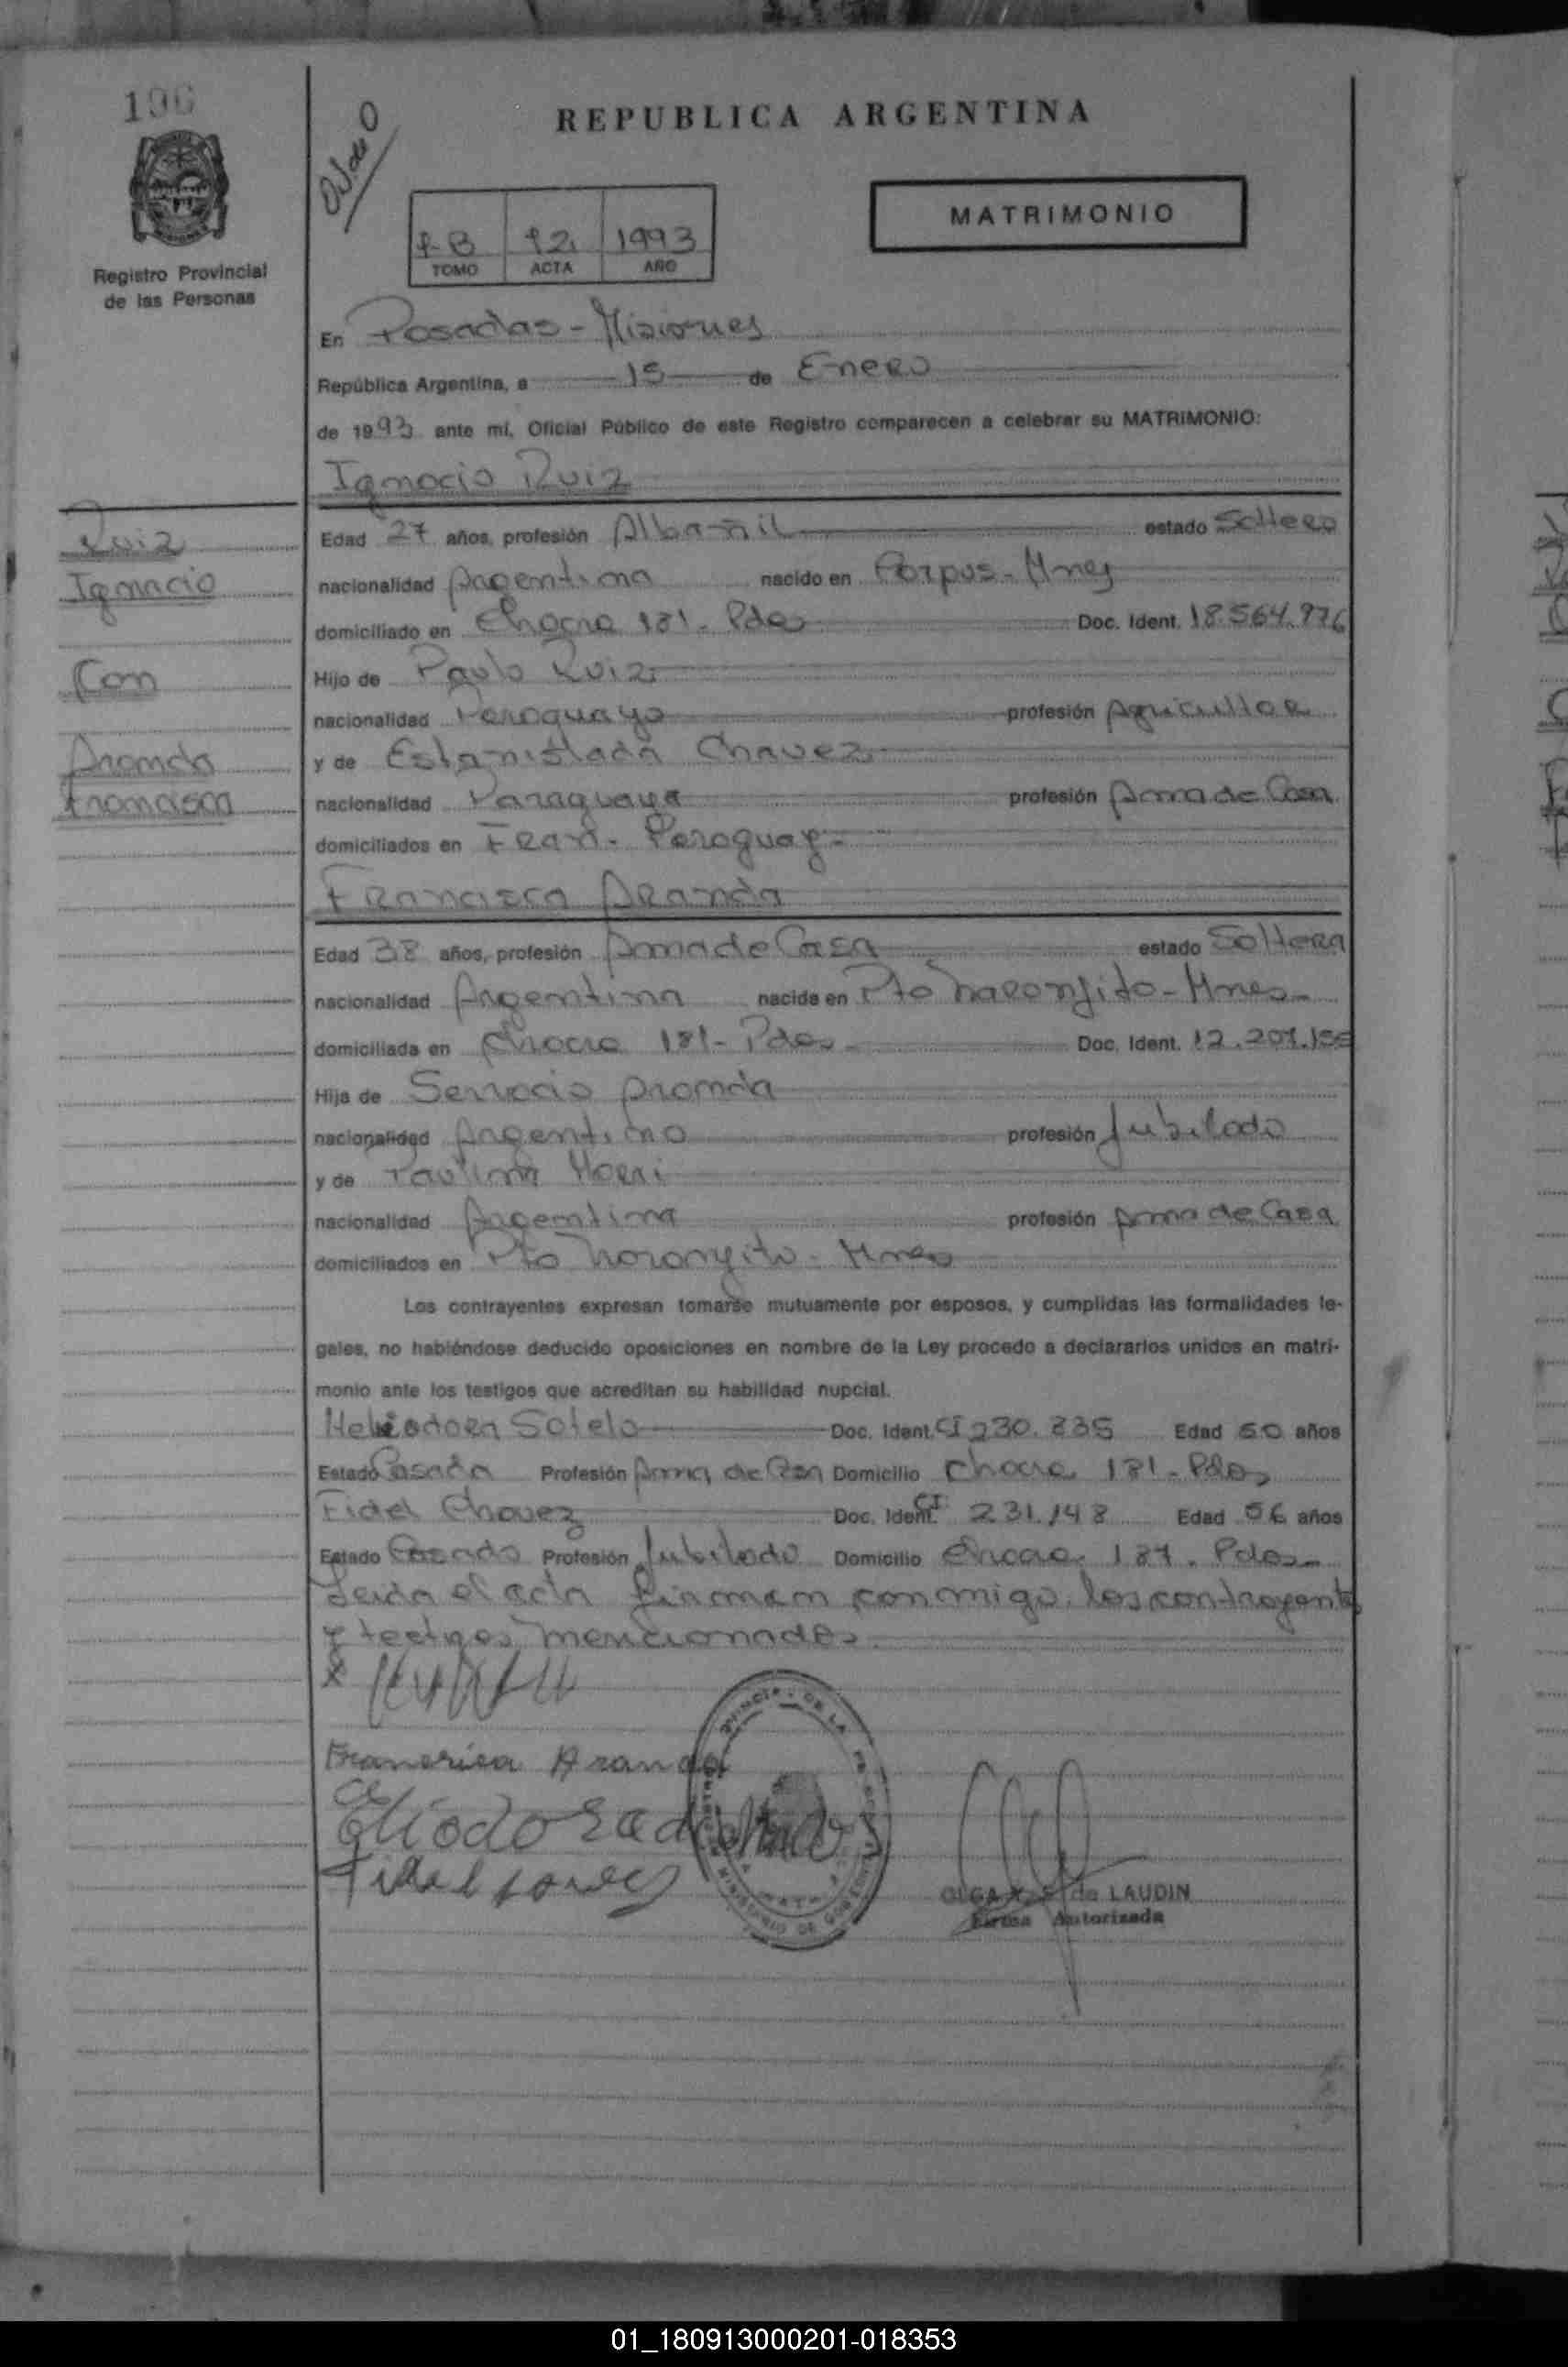 196
Registro Provincial
de las Personas
REPUBLICA ARGENTINA
MATRIMONIO
1993
TOMO ACTA AÑO
En Posadas - Misiones
República Argentina, a 15 de Enero
de 1993 ante mí, Oficial Público de este Registro comparecen a celebrar su MATRIMONIO:
Ignacio Ruiz
Ruiz
Ignacio
Con
Aranda
Francisca
Edad 27 años, profesión Albañil estado Soltero
nacionalidad Argentina nacido en Corpus - Mnes
domiciliado en Chacra 181 - Pdas Doc. Ident. 18.564.976
Hijo de Paulo Ruiz
nacionalidad Paraguayo profesión Agricultor
y de Estanislada Chavez
nacionalidad Paraguaya profesión Ama de Casa
domiciliados en Fram - Paraguay -
Francisca Aranda
Edad 38 años, profesión Ama de Casa estado Soltera
nacionalidad Argentina nacida en Pto Naranjito - Mnes -
domiciliada en Chacra 181 - Pdas - Doc. Ident.
Hija de Servacio Aranda
nacionalidad Argentino profesión Jubilado
y de Paulina
nacionalidad Argentina profesión Ama de Casa
domiciliados en Pto Naranjito - Mnes
Los contrayentes expresan tomarse mutuamente por esposos, y cumplidas las formalidades le-
gales, no habiéndose deducido oposiciones en nombre de la Ley procedo a declararlos unidos en matri-
monio ante los testigos que acreditan su habilidad nupcial.
Heliodora Sotelo Doc. Ident. CI 230.835 Edad 50 años
Estado Casada Profesión Ama de Casa Domicilio Chacra 181 - Pdas
Fidel Chavez Doc. Ident. CI 231.148 Edad 56 años
Estado Casado Profesión Jubilado Domicilio Chacra 181 . Pdas -
Leida el acta firman conmigo los contrayentes
y testigos mencionados
x
Francisca Aranda
Eliodora
Fidel
OLGA de LAUDIN
Firma Autorizada
01_180913000201-018353